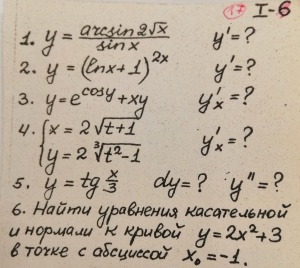 17 I-6
1. y = arcsin2√x / sinx y' = ?
2. y = (lnx+1)^2x y' = ?
3. y = e^cosy + xy y'ₓ = ?
4. { x = 2√(t+1) y'ₓ = ?
y = 2 ∛(t²-1)
5. y = tg x/3 dy = ? y" = ?
6. Найти уравнения касательной
и нормали к кривой y = 2x² + 3
в точке с абсциссой x₀ = -1.